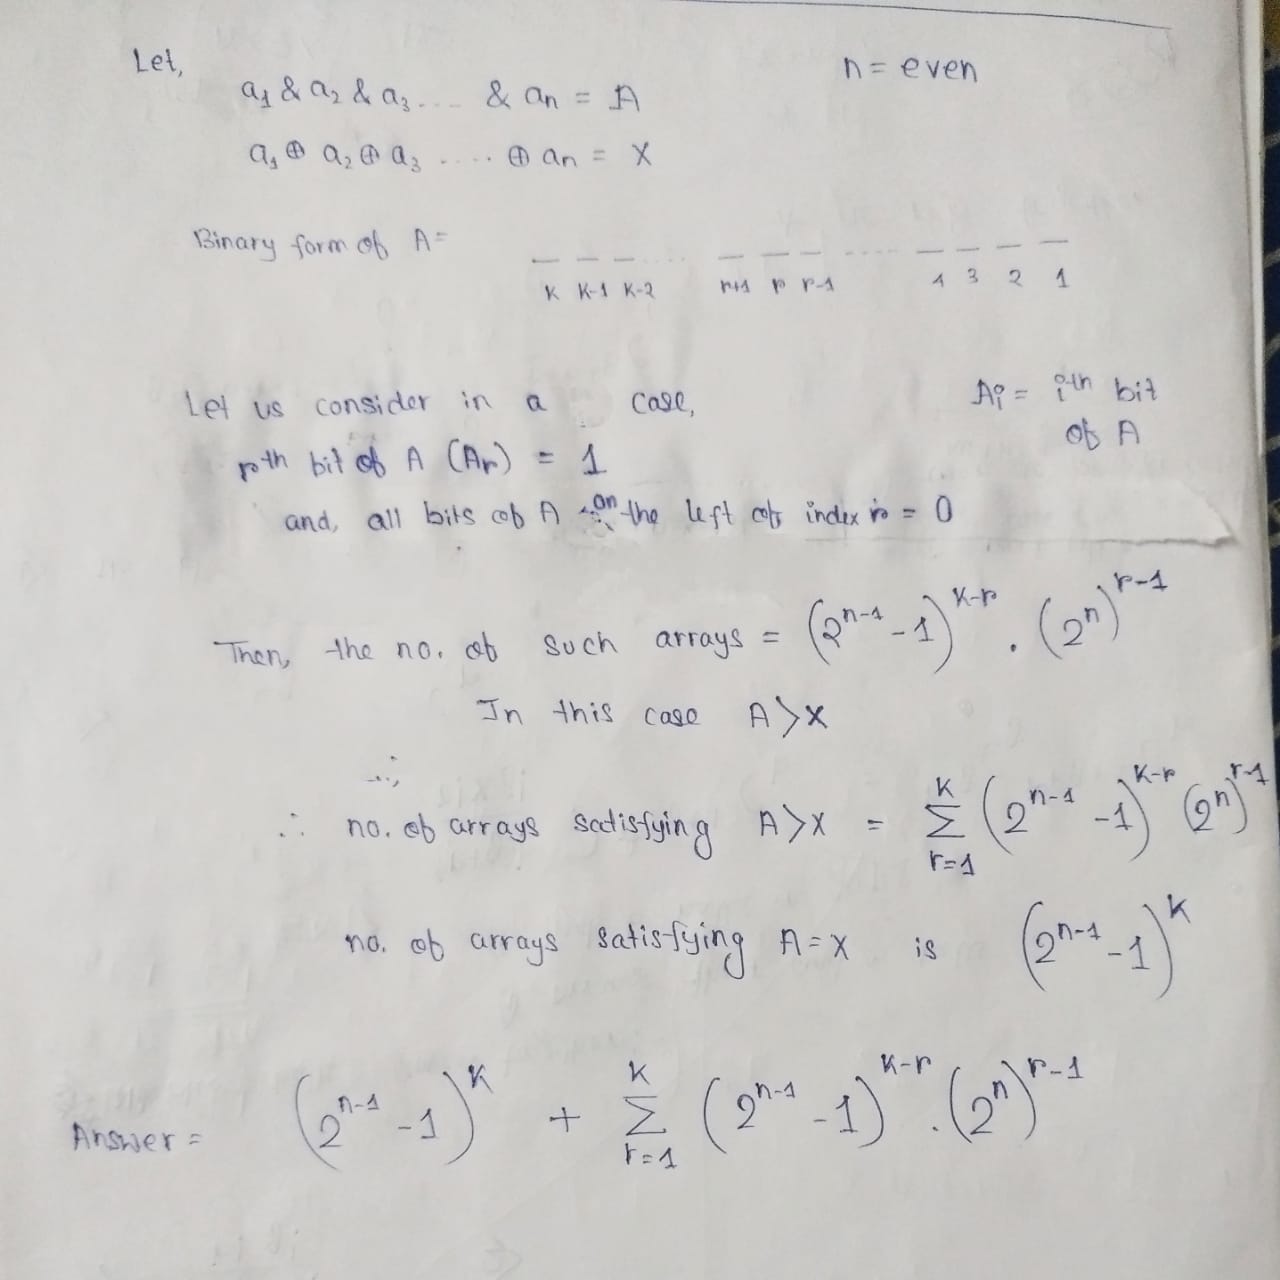 Let,
n = even
a₁ & a₂ & a₃ .... & aₙ = A
a₁ ⊕ a₂ ⊕ a₃ ..... ⊕ aₙ = X
Binary form of A =
k k-1 k-2 r+1 r r-1 4 3 2 1
Let us consider in a case,
Aᵢ = i-th bit of A
rth bit of A (Aᵣ) = 1
and, all bits of A on the left of index r = 0
Then, the no. of such arrays = (2ⁿ⁻¹ - 1)ᵏ⁻ʳ . (2ⁿ)ʳ⁻¹
In this case A > X
∴ no. of arrays satisfying A > X = Σ_{r=1}^{k} (2ⁿ⁻¹ - 1)ᵏ⁻ʳ (2ⁿ)ʳ⁻¹
no. of arrays satisfying A = X is (2ⁿ⁻¹ - 1)ᵏ
Answer = (2ⁿ⁻¹ - 1)ᵏ + Σ_{r=1}^{k} (2ⁿ⁻¹ - 1)ᵏ⁻ʳ . (2ⁿ)ʳ⁻¹